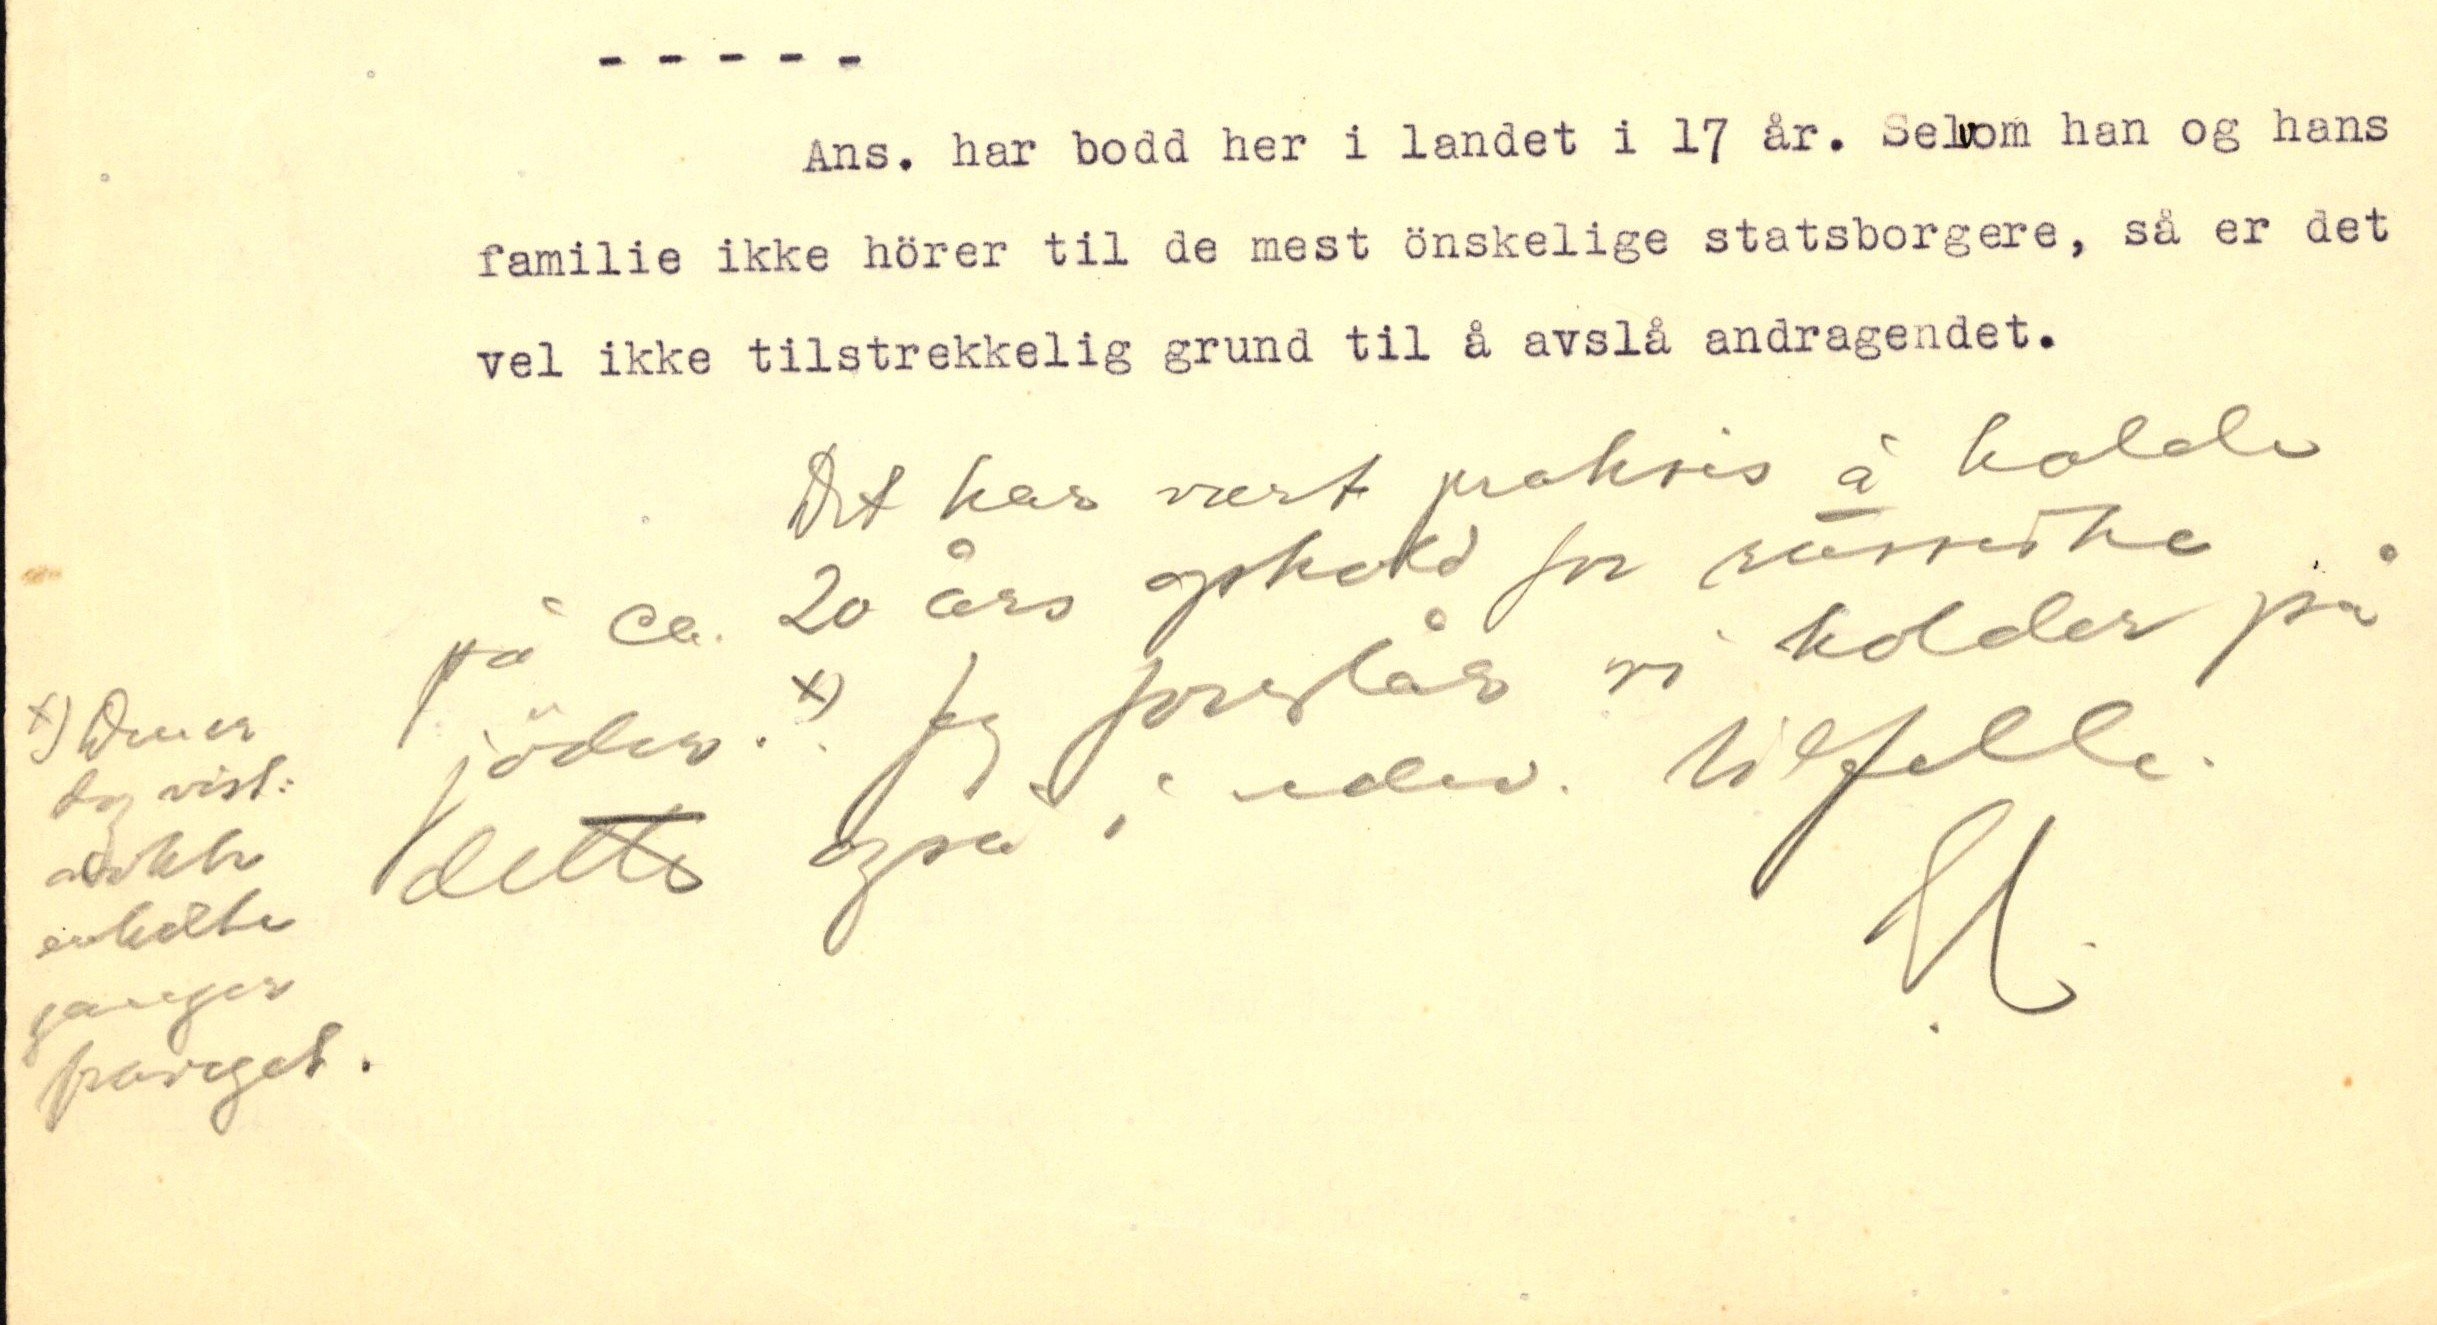 - - - - -
Ans. har bodd her i landet i 17 år. Selvom han og hans
familie ikke hörer til de mest önskelige statsborgere, så er det
vel ikke tilstrekkelig grund til å avslå andragendet.
Det har vært praksis å holde
på ca. 20 års ophold for russiske
jöder. x) Jeg foreslår vi holder på
dette også i
tilfelle.
x) Den er
dog vist
enkelte
ganger
fraveget.